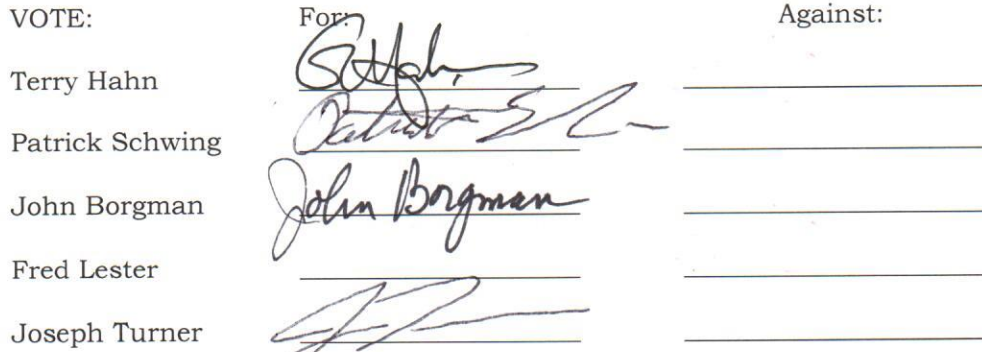 VOTE: For: Against:
Terry Hahn
Patrick Schwing
John Borgman John Borgman
Fred Lester
Joseph Turner